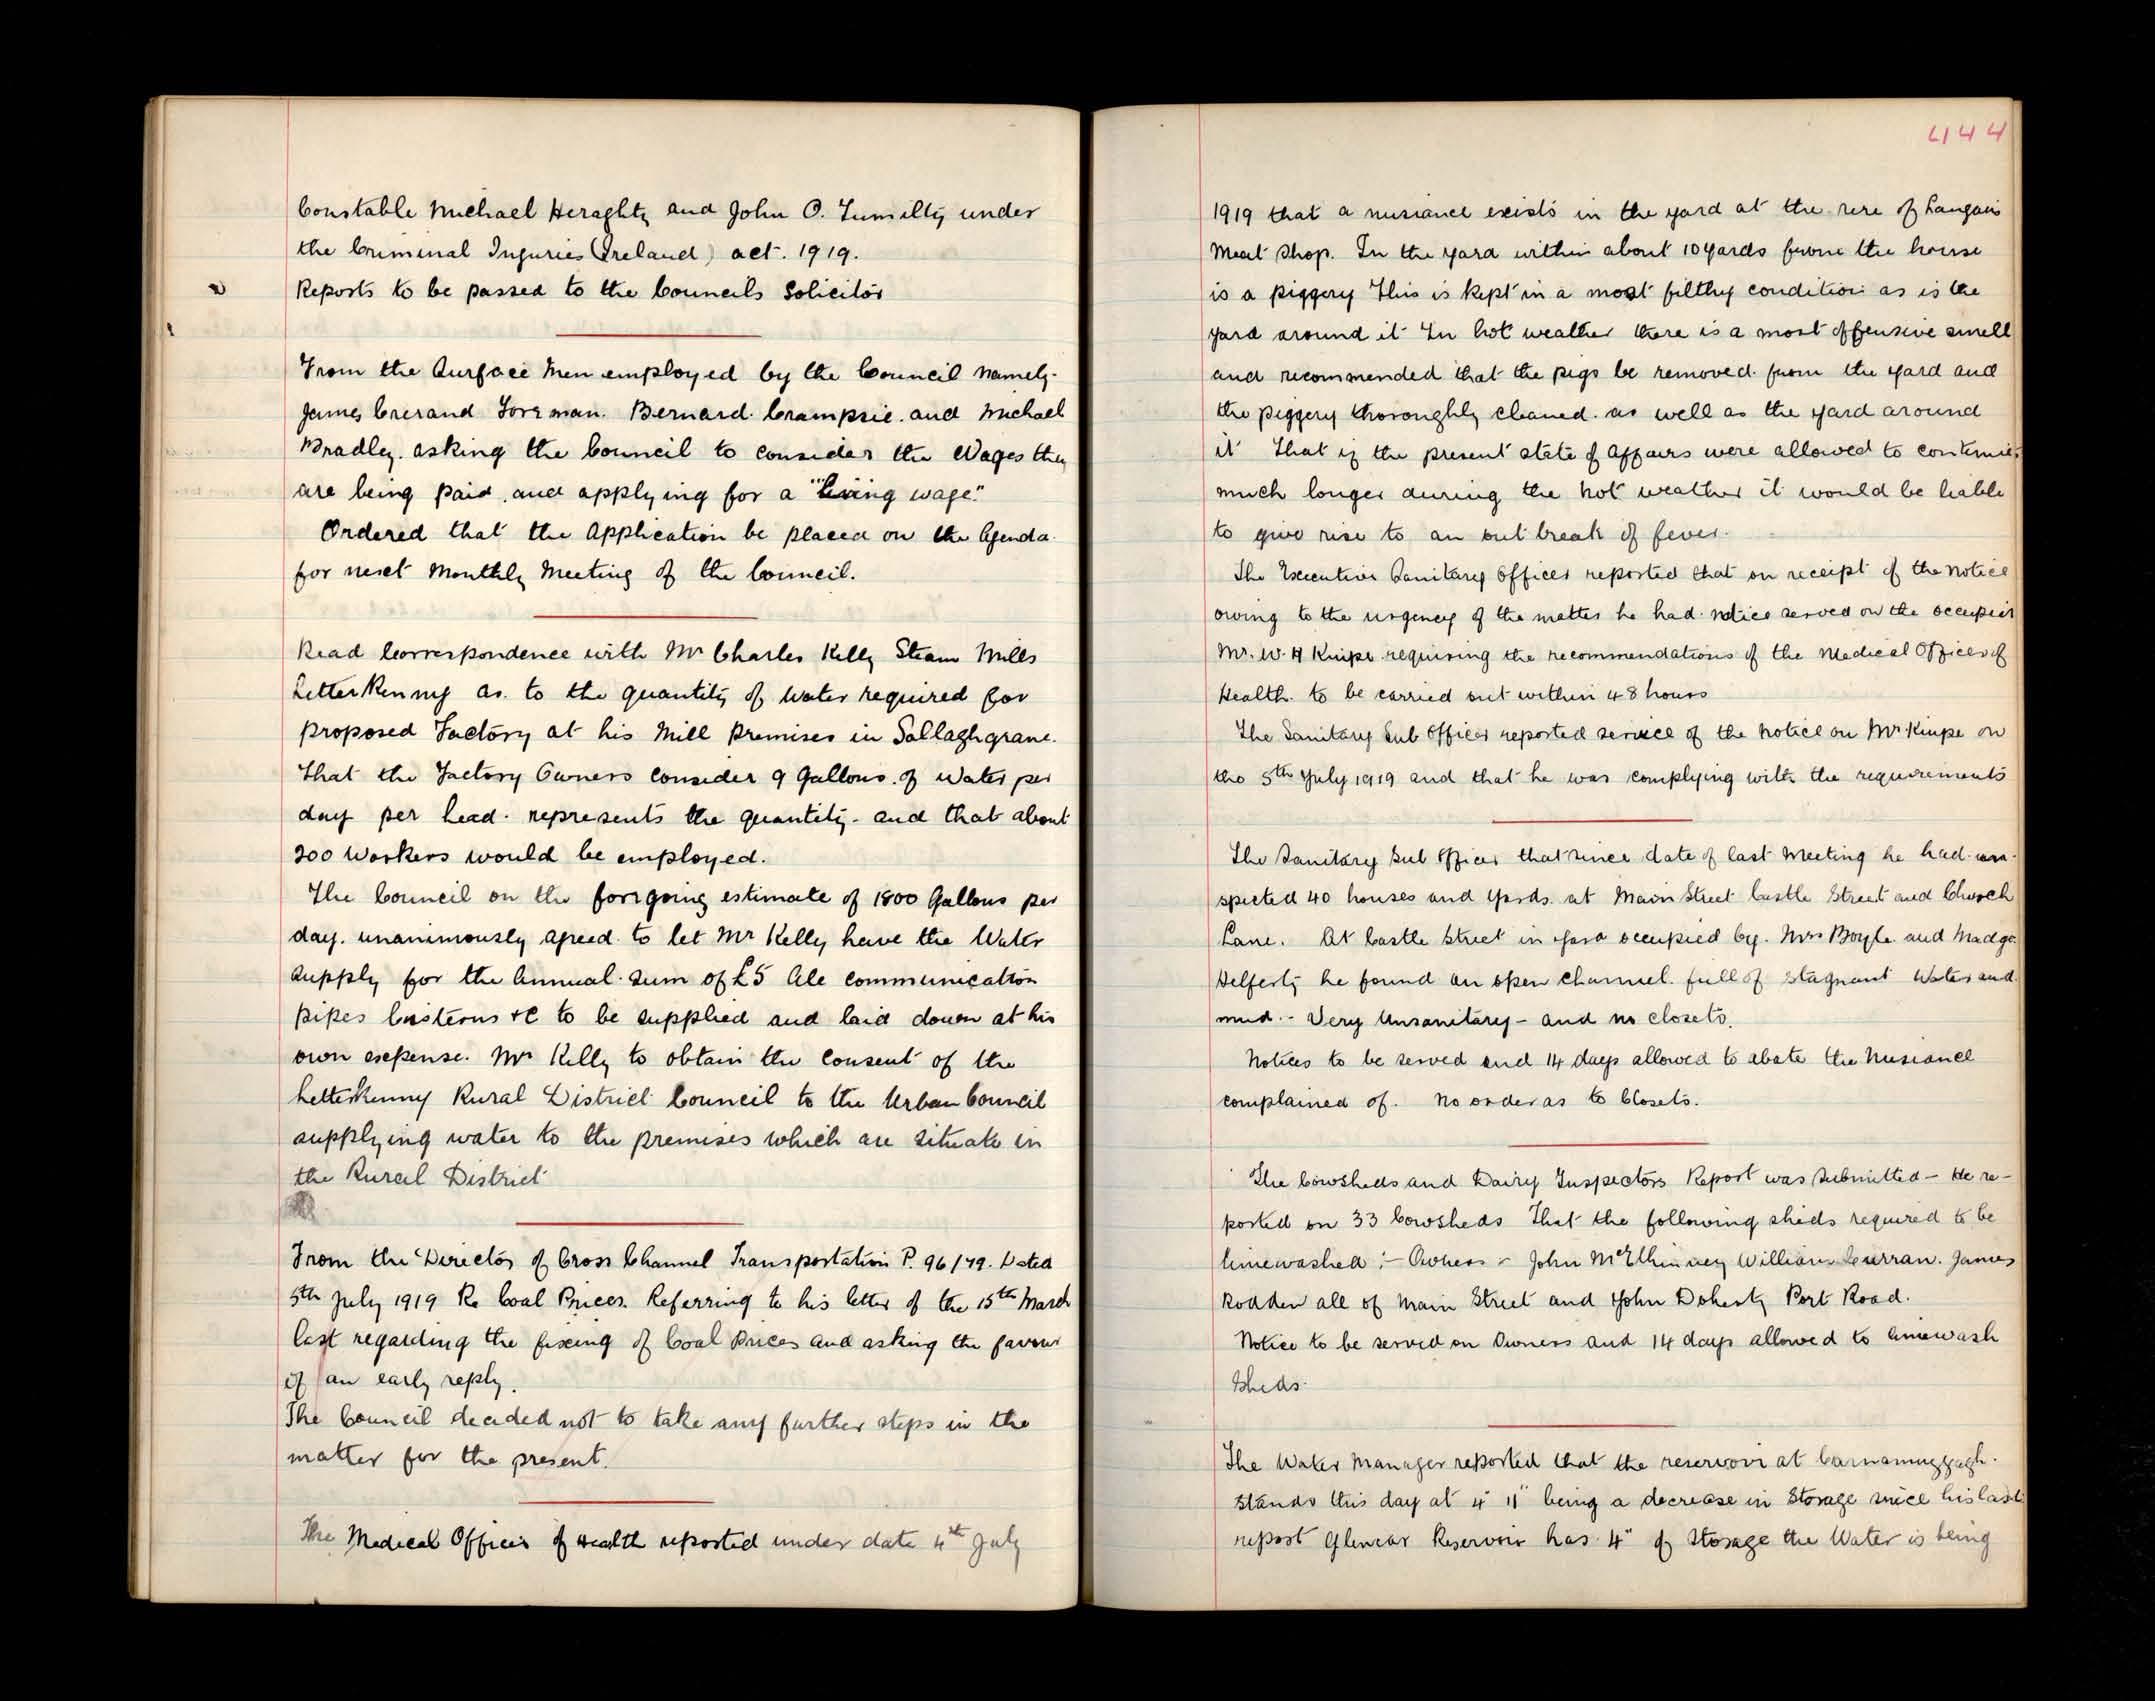 Constable Michael Heraghty and John O. Tumilty under
the Criminal Injuries (Ireland) act. 1919.
Reports to be passed to the Councils Solicitor
From the Surface Men employed by the Council namely-
James Crerand Foreman. Bernard Crampsie. and Michael
Bradley. asking the Council to consider the Wages they
are being paid. and applying for a "living wage".
Ordered that the Application be placed on the Agenda
for next Monthly Meeting of the Council.
Read Correspondence with Mr Charles Kelly Steam Mills
Letterkenny as to the quantity of Water required for
proposed Factory at his Mill Premises in Sallaghgrane.
That the Factory Owners consider 9 Gallons of Water per
day per head. represents the quantity- and that about
200 Workers would be employed.
The Council on the forgoing estimate of 1800 Gallons per
day. unanimously agreed to let Mr Kelly have the Water
Supply for the Annual Sum of £5 All communication
pipes Cisterns &c to be supplied and laid down at his
own expense. Mr Kelly to obtain the Consent of the
Letterkenny Rural District Council to the Urban Council
supplying water to the premises which are situate in
the Rural District
From the Director of Cross Channel Transportation P. 96/79. Dated
5th July 1919 Re Coal Prices. Referring to his letter of the 15th March
last regarding the fixing of Coal Prices and asking the favour
of an early reply.
The Council decided not to take any further steps in the
matter for the present.
The Medical Officer of Health reported under date 4th July
444
1919 that a nusiance exists in the yard at the rere of Langans
Meat Shop. In the yard within about 10 yards from the house
is a piggery This is kept in a most filthy condition as is the
yard around it In hot weather there is a most offensive smell
and recommended that the pigs be removed from the yard and
the piggery thoroughly cleaned. as well as the yard around
it That if the present state of affairs were allowed to continue
much longer during the hot weather it would be liable
to give rise to an out break of fever.
The Executive Sanitary Officer reported that on receipt of the notice
owing to the urgency of the matter he had notice served on the occupier
Mr. W. H Knipe requiring the recommendations of the Medical Officer of
Health. to be carried out within 48 hours
The Sanitary Sub Officer reported service of the notice on Mr Knipe on
the 5th July 1919 and that he was complying with the requirements
The Sanitary Sub Officer that since date of last Meeting he had in-
spected 40 houses and yards at Main Street Castle Street and Church
Lane. At Castle Street in yard occupied by. Mrs Boyle and Madge
Helferty he found an open channel. full of stagnant Water and
mud.- Very Unsanitary- and no closets.
Notices to be served and 14 days allowed to abate the Nusiance
complained of. No order as to Closets.
The Cowsheds and Dairy Inspectors Report was submitted - He re-
ported on 33 Cowsheds That the following sheds required to be
limewashed :- Owners - John McElhinney William Curran. James
Rodden all of Main Street and John Doherty Port Road.
Notice to be served on Owners and 14 days allowed to limewash
Sheds.
The Water Manager reported that the reservoir at
Stands this day at 4' 11" being a decrease in Storage since his last
report Glencar Reservoir has 4" of Storage the Water is being